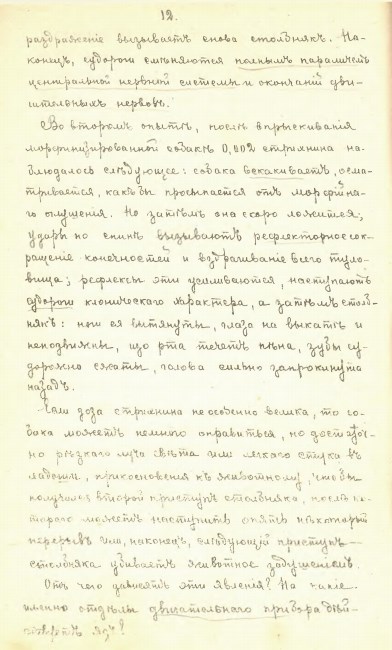 12.
раздраженіе вызываетъ снова столбнякъ. На-
конецъ, судороги смѣняются полнымъ параличемъ
центральной нервной системы и окончаній дви-
гательныхъ нервовъ.
Во второмъ опытѣ, послѣ впрыскиванія
морфинизированной собакѣ 0,002 стрихнина на-
блюдалось слѣдующее: собака вскакиваетъ, осма-
тривается, какъ бы просыпается отъ морфійна-
го оглушенія. Но затѣмъ она скоро ложится;
удары по спинѣ вызываютъ рефлекторное сок-
ращеніе конечностей и вздрагиваніе всего туло-
вища; рефлексы эти усиливаются; наступаютъ
судороги клоническаго характера, а затѣмъ столб-
някъ: ноги ея вытянуты, глаза на выкатѣ и
неподвижны, изо рта течетъ пѣна, зубы су-
дорожно сжаты, голова сильно запрокинута
назадъ.
Если доза стрихнина не особенно велика, то со-
бака можетъ немного оправиться, но достаточ-
но рѣзкаго луча свѣта или легкаго стука въ
ладоши, прикосновенія къ животному, чтобы
получился второй приступъ столбняка, послѣ ко-
тораго можетъ наступить опять нѣкоторый
перерывъ или, наконецъ, слѣдующій приступъ
столбняка убиваетъ животное задушеніемъ.
Отъ чего зависятъ эти явленія? На какіе
именно отдѣлы двигательнаго прибора дѣй-
ствуетъ ядъ?